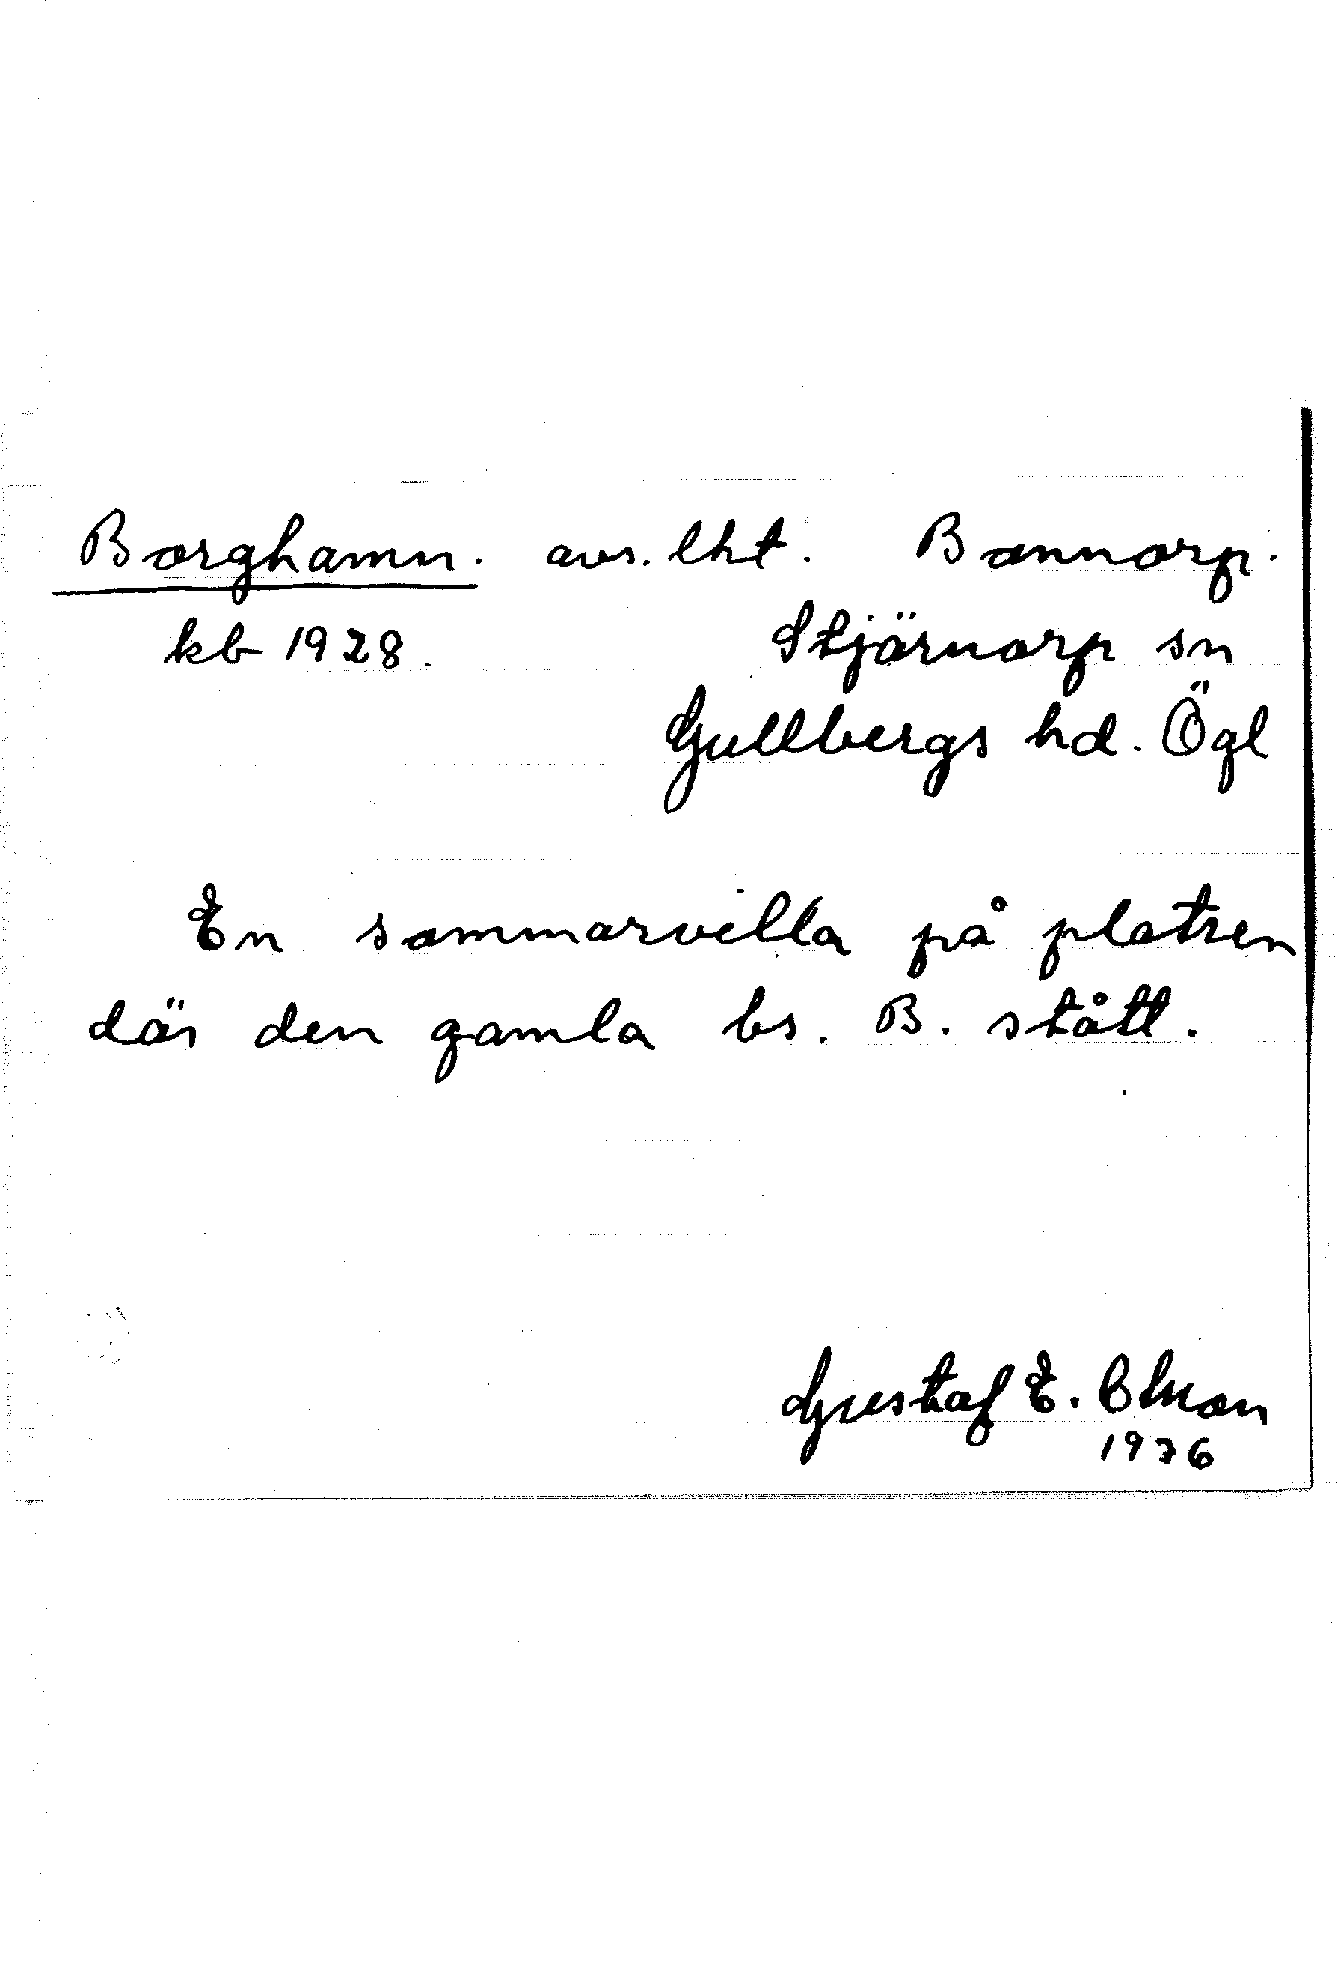 Borghamn. avs. lht. Bonnorp.
kb 1928. Stjärnorp sn
Gullbergs hd. Ögl
En sommarvilla på platsen
där den gamla bs. B. stått.
Gustaf E.
1936